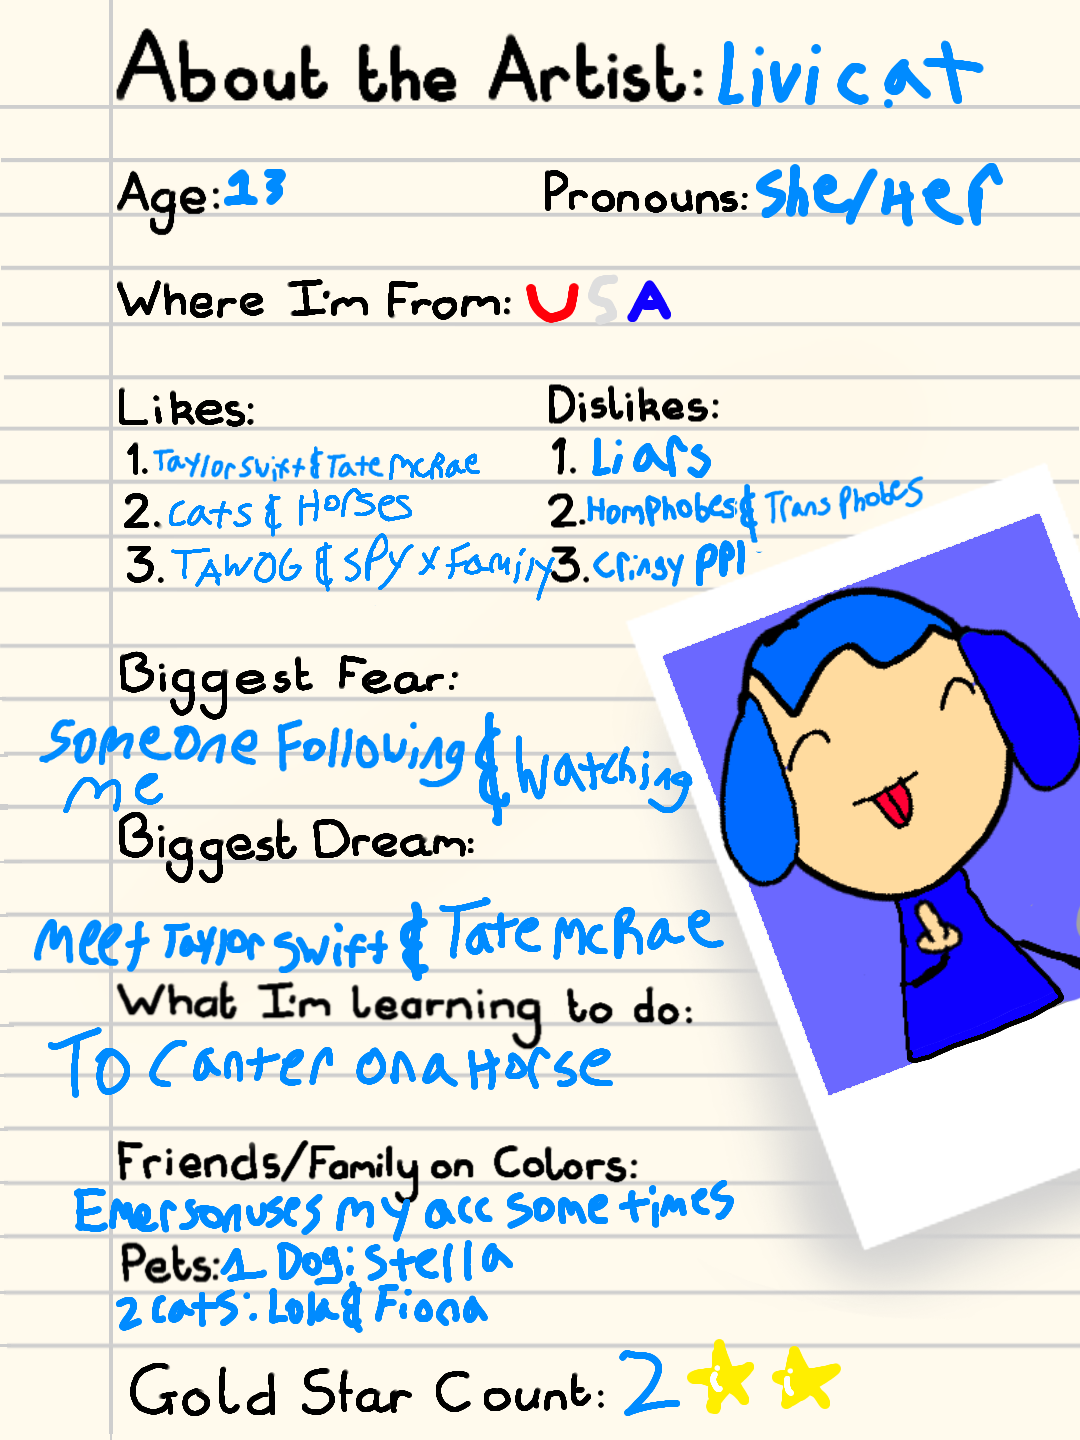 About the Artist: Livicat
Age: 13 Pronouns: She/Her
Where I'm From: USA
Likes: Dislikes:
1. Taylor swift & Tate McRae 1. Liars
2. cats & Horses 2. Homphobes & Transphobes
3. TAWOG & SPY x Family 3. Cringy ppl
Biggest Fear:
Someone Following & Watching
me
Biggest Dream:
Meet Taylor swift & Tate McRae
What I'm learning to do:
To Canter on a Horse
Friends/Family on Colors:
Emerson uses my acc some times
Pets: 1 Dog: Stella
2 cats: Lola & Fiona
Gold Star Count: 2